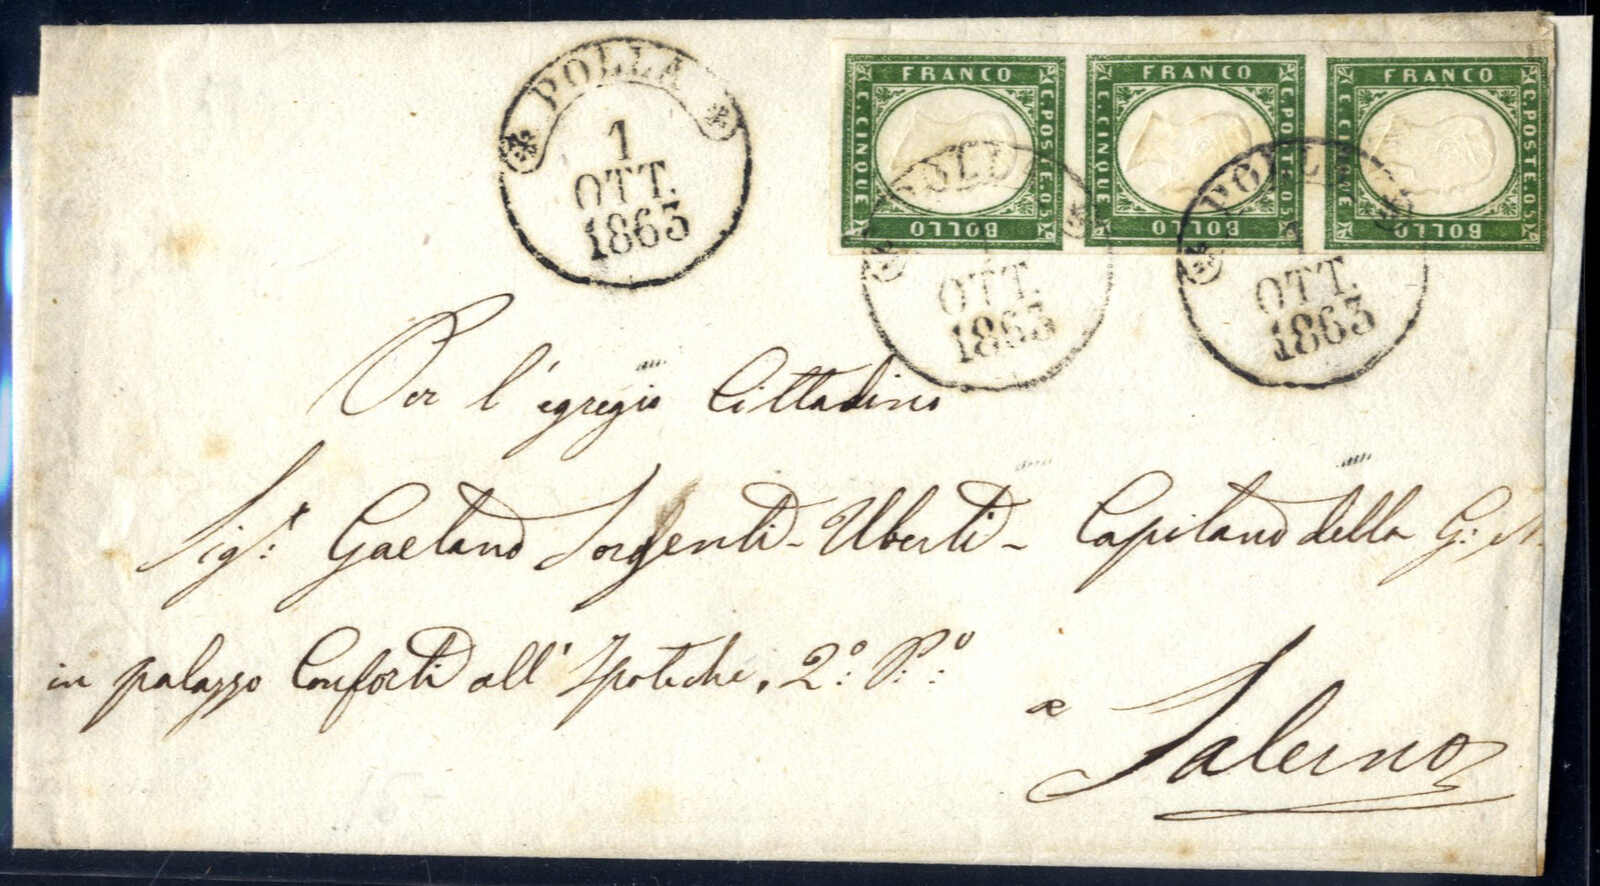 POLLA
1
OTT.
1863
FRANCO
C. POSTE. 05
BOLLO
C. CINQUE
FRANCO
C. POSTE. 05
BOLLO
C. CINQUE
FRANCO
C. POSTE. 05
BOLLO
C. CINQUE
POLLA
1
OTT.
1863
POLLA
1
OTT.
1863
Per l'egregio Cittadino
Sig.r Gaetano Sorgenti-Uberti- Capitano della G: N.
in palazzo Conforti all' Ipoteche, 2.º P.º
a
Salerno